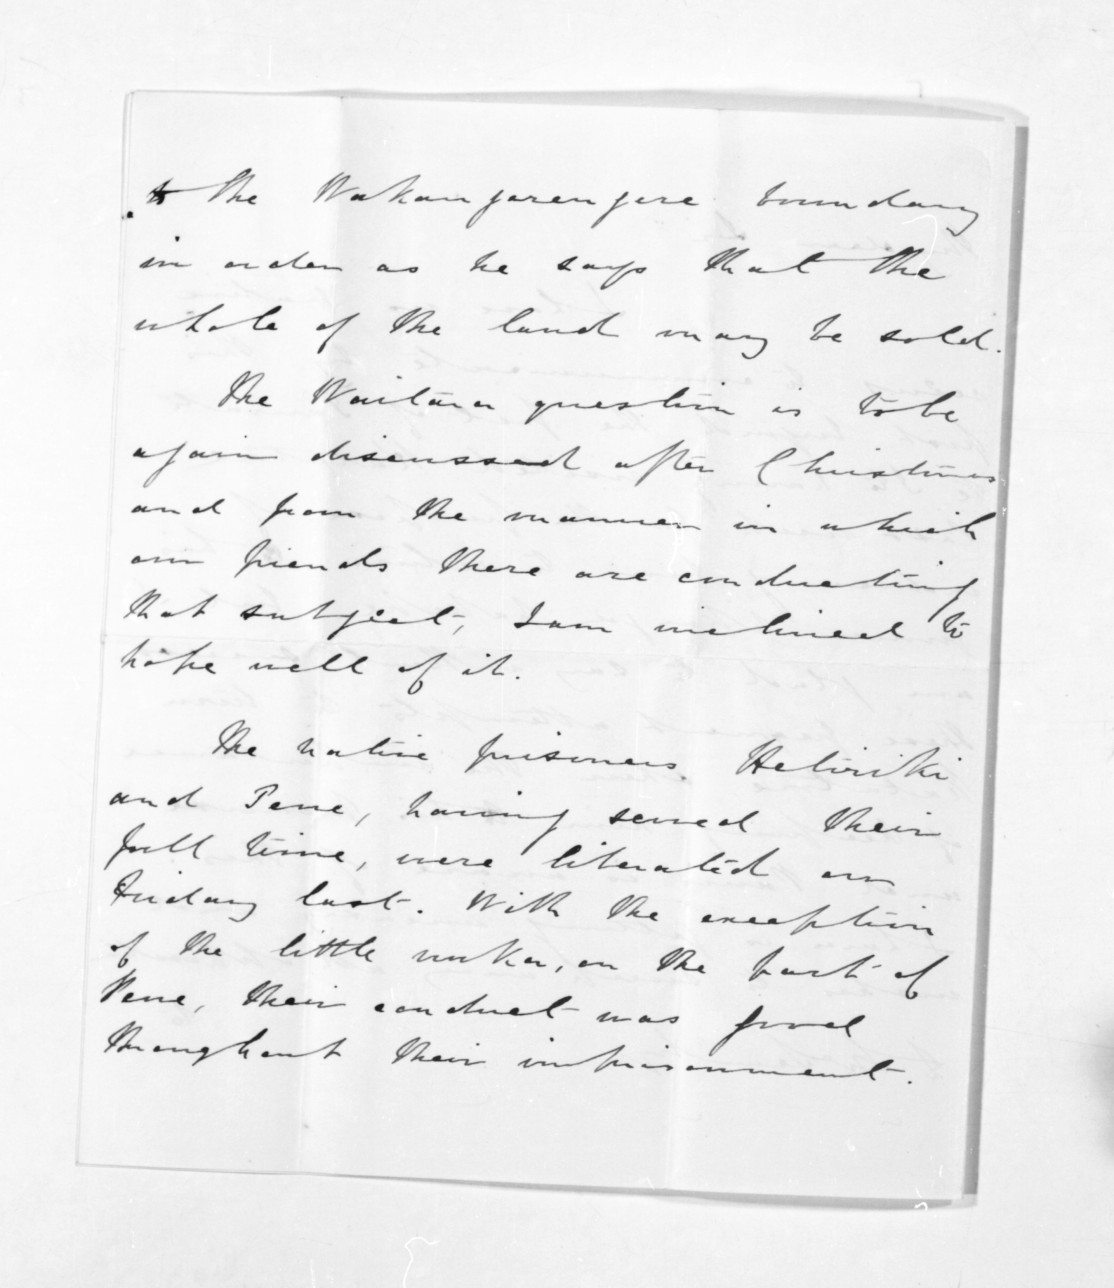 to the Wakangerengere boundary
in order as he says that the
whole of the land may be sold.
The Waitara question is to be
again discussed after Christmas
and from the manner in which
our friends there are conducting
that subject, I am inclined to
hope well of it.
The native prisoners Hetiriki
and Pene, having served their
full time, were liberated on
Friday last. With the exception
of the little on the part of
Pene, their conduct was good
throughout their imprisonment.